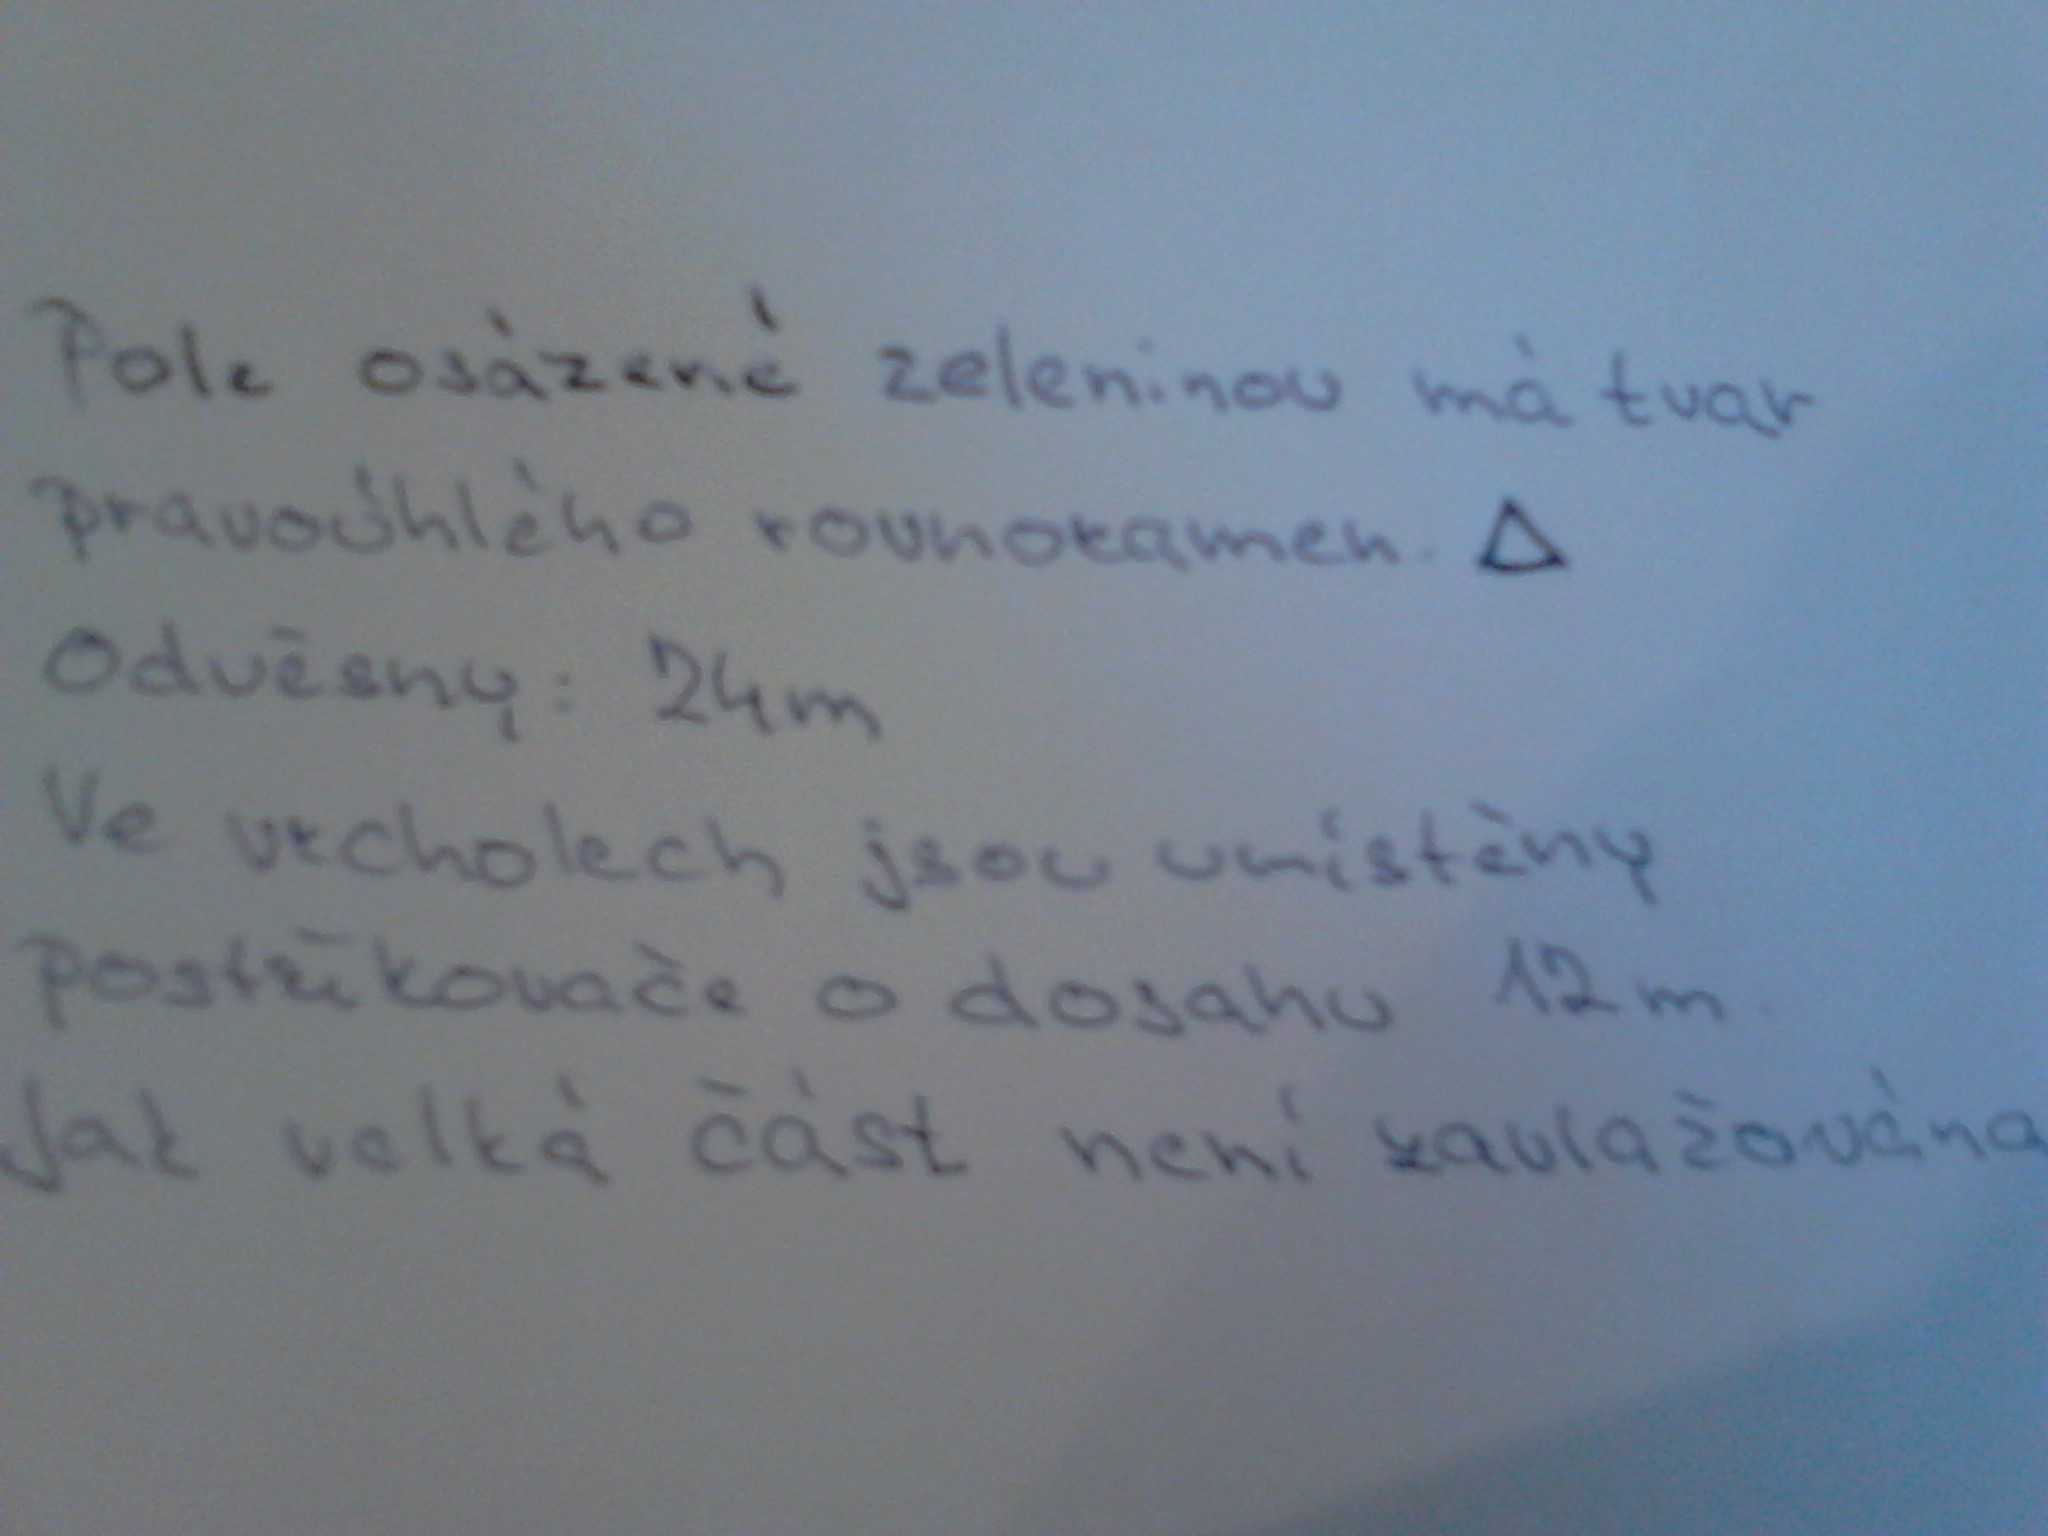 Pole osázené zeleninou má tvar
pravoúhlého rovnoramen. Δ
Odvěsny: 24m
Ve vrcholech jsou umístěny
postřikovače o dosahu 12m.
Jak velká část není zavlažována